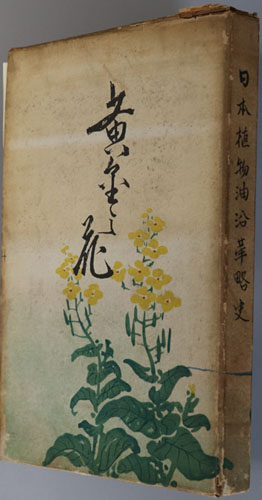 黄金の花
日本植物油沿革略史